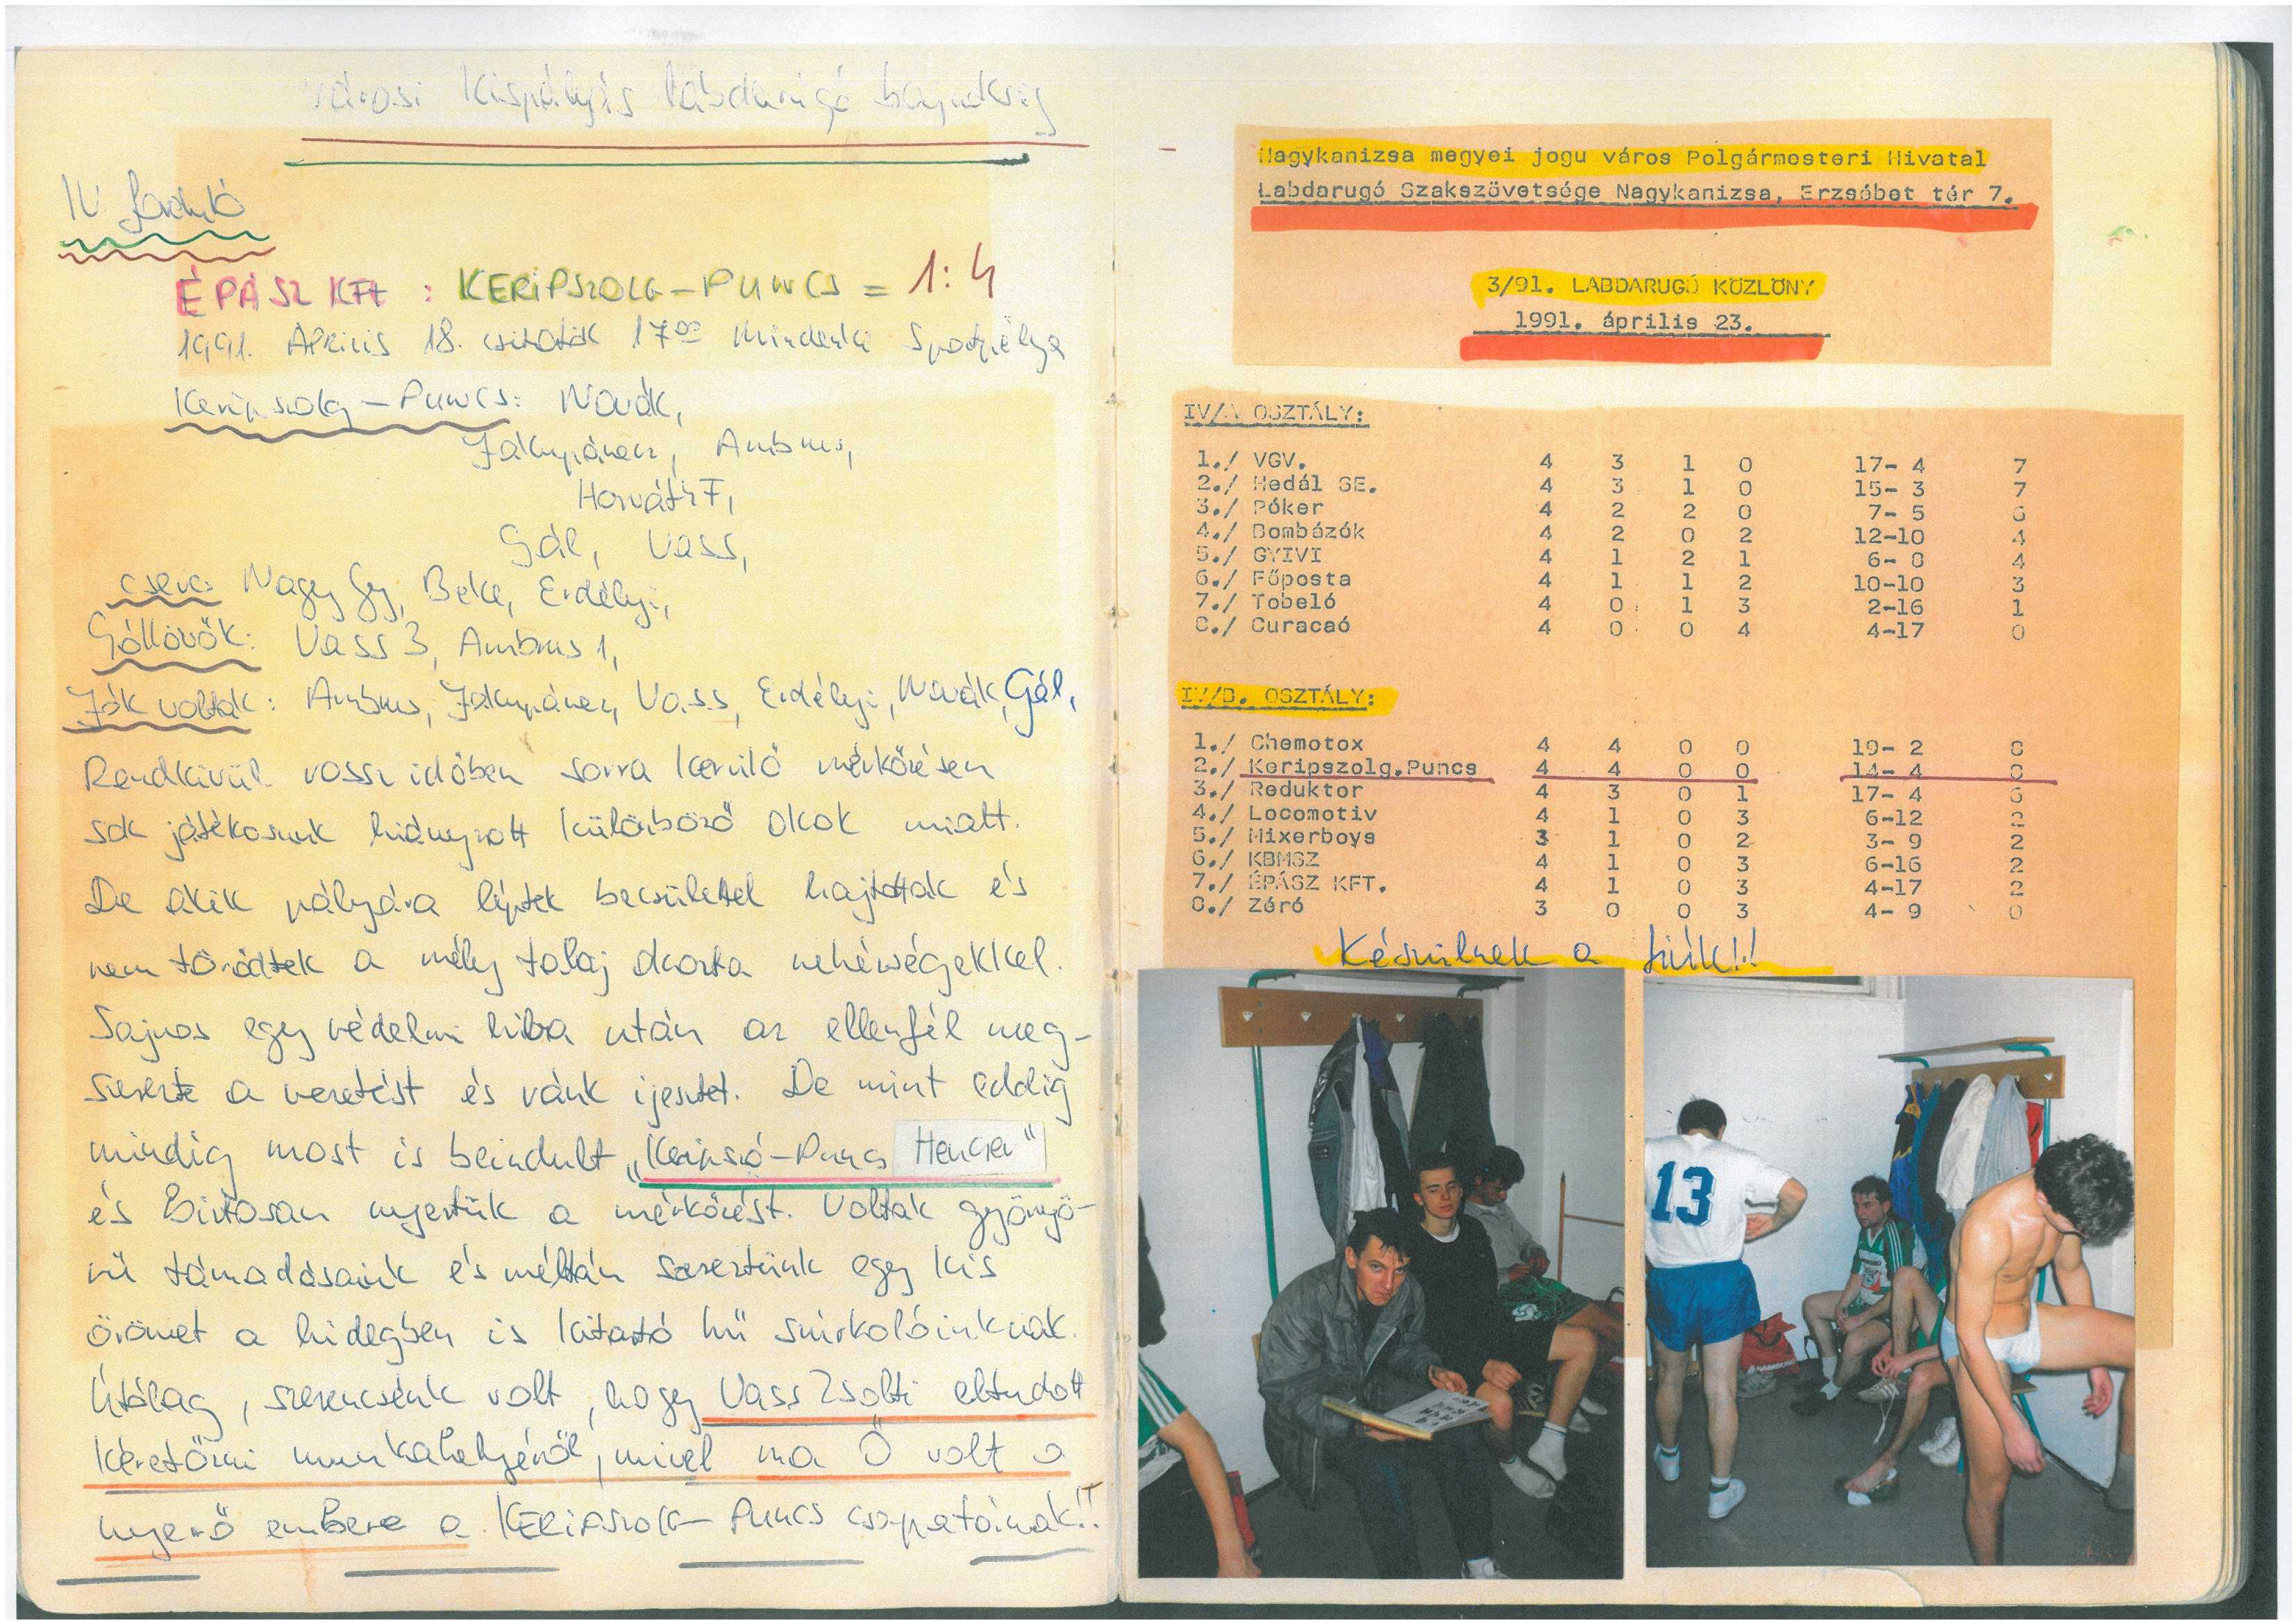 Városi Kispályás labdarúgó bajnokság
IV forduló
ÉPÁSZ KFt : KERIPSZOLG-PUNCS = 1:4
1991. Április 18. csütörtök 17⁰⁰ Mindenki Sportpálya
Keripszolg-Puncs: Novák,
Zákupánecz, Ambrus,
Horváth F,
Gál, Vass,
csere: Nagy Gy, Beke, Erdélyi,
Góllövők: Vass 3, Ambrus 1,
Jók voltak: Ambrus, Vass, Erdélyi, Novák, Gál,
Rendkívül rossz időben sorra kerülő mérkőzésen
sok játékosunk hiányzott különböző okok miatt.
De akik pályára léptek becsülettel hajtottak és
nem törődtek a mély talaj okozta nehézségekkel.
Sajnos egy védelmi hiba után az ellenfél meg-
szerezte a vezetést és ránk ijesztet. De mint eddig
mindig most is beindult „Keripszó-Puncs Henger"
és Biztosan nyertük a mérkőzést. Voltak gyönyö-
rű támadásaink és méltán szereztünk egy kis
örömet a hidegben is kitartó hű szurkolóinknak.
Útólag, szerencsénk volt, hogy Vass Zsolti eltudott
kéretőzni munkahelyéről, mivel ma Ő volt a
nyerő embere a KERIPSZOLG-PUNCS csapatának!!
Nagykanizsa megyei jogu város Polgármesteri Hivatal
Labdarugó Szakszövetsége Nagykanizsa, Erzsébet tér 7.
3/91. LABDARUGÓ KÖZLÖNY
1991. április 23.
IV/A OSZTÁLY:
1./ VGV. 4 3 1 0 17- 4 7
2./ Hedál SE. 4 3 1 0 15- 3 7
3./ Póker 4 2 2 0 7- 5 6
4./ Bombázók 4 2 0 2 12-10 4
5./ GYIVI 4 1 2 1 6- 8 4
6./ Főposta 4 1 1 2 10-10 3
7./ Tobeló 4 0 1 3 2-16 1
8./ Curacaó 4 0 0 4 4-17 0
IV/B. OSZTÁLY:
1./ Chemotox 4 4 0 0 19- 2 8
2./ Keripszolg.Puncs 4 4 0 0 14- 4 8
3./ Reduktor 4 3 0 1 17- 4 6
4./ Locomotiv 4 1 0 3 6-12 2
5./ Mixerboys 3 1 0 2 3- 9 2
6./ KBMSZ 4 1 0 3 6-16 2
7./ ÉPÁSZ KFT. 4 1 0 3 4-17 2
8./ Zéró 3 0 0 3 4- 9 0
Készülnek a fiúk!!
13